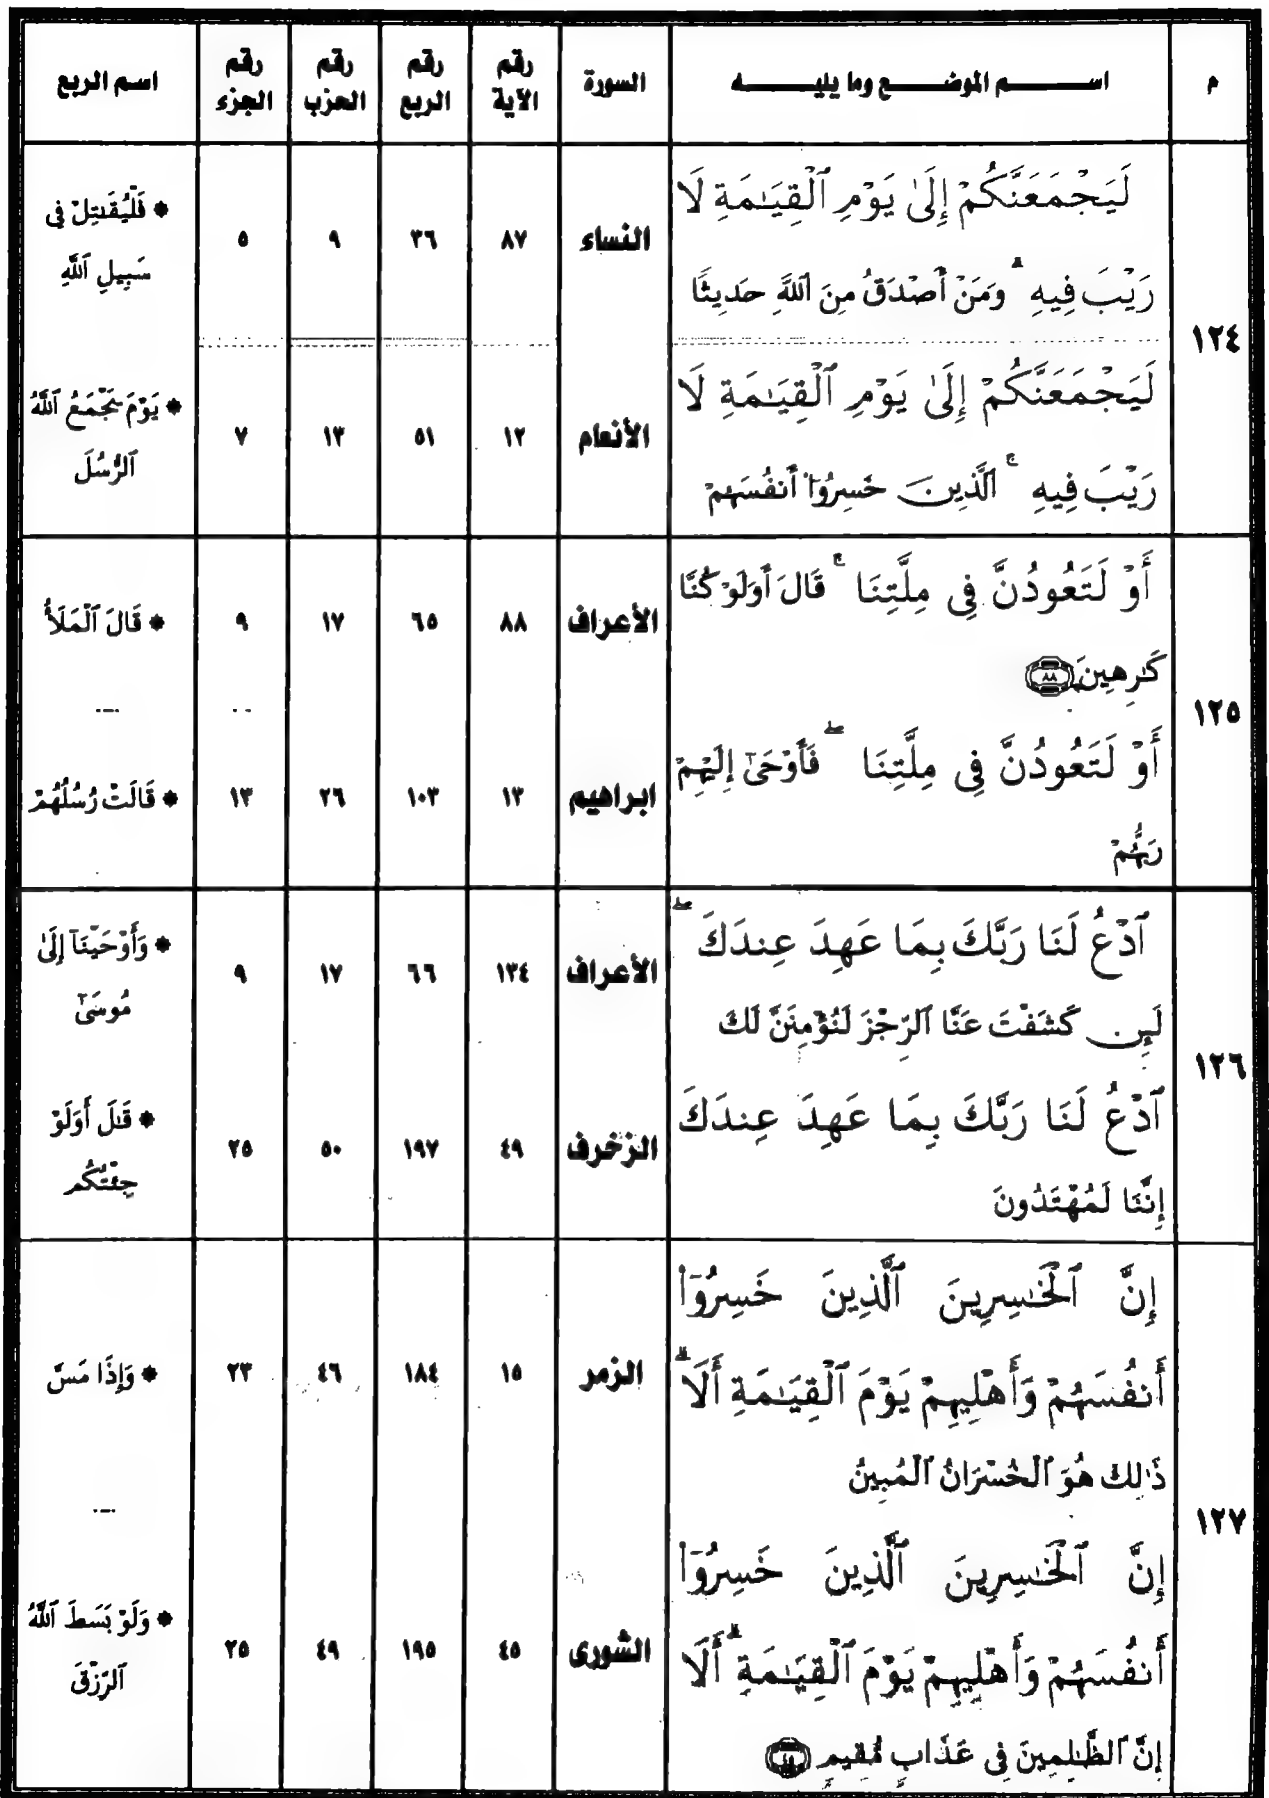 م اسم الموضع وما يليه السورة رقم الآية رقم الربع رقم الحزب رقم الجزء اسم الربع
١٢٤
لَيَجْمَعَنَّكُمْ إِلَىٰ يَوْمِ ٱلْقِيَـٰمَةِ لَا
رَيْبَ فِيهِ ۗ وَمَنْ أَصْدَقُ مِنَ ٱللَّهِ حَدِيثًا
النساء ٨٧ ٣٦ ٩ ٥
* فَلْيُقَـٰتِلْ فِى
سَبِيلِ ٱللَّهِ
لَيَجْمَعَنَّكُمْ إِلَىٰ يَوْمِ ٱلْقِيَـٰمَةِ لَا
رَيْبَ فِيهِ ۚ ٱلَّذِينَ خَسِرُوٓا۟ أَنفُسَهُمْ
الأنعام ١٢ ٥١ ١٣ ٧
* يَوْمَ يَجْمَعُ ٱللَّهُ
ٱلرُّسُلَ
١٢٥
أَوْ لَتَعُودُنَّ فِى مِلَّتِنَا ۚ قَالَ أَوَلَوْ كُنَّا
كَـٰرِهِينَ ٨٨
الأعراف ٨٨ ٦٥ ١٧ ٩
* قَالَ ٱلْمَلَأُ
أَوْ لَتَعُودُنَّ فِى مِلَّتِنَا ۖ فَأَوْحَىٰٓ إِلَيْهِمْ
رَبُّهُمْ
ابراهيم ١٣ ١٠٣ ٢٦ ١٣
* قَالَتْ رُسُلُهُمْ
١٢٦
ٱدْعُ لَنَا رَبَّكَ بِمَا عَهِدَ عِندَكَ ۖ
لَئِن كَشَفْتَ عَنَّا ٱلرِّجْزَ لَنُؤْمِنَنَّ لَكَ
الأعراف ١٣٤ ٦٦ ١٧ ٩
* وَأَوْحَيْنَآ إِلَىٰ
مُوسَىٰٓ
ٱدْعُ لَنَا رَبَّكَ بِمَا عَهِدَ عِندَكَ
إِنَّنَا لَمُهْتَدُونَ
الزخرف ٤٩ ١٩٧ ٥٠ ٢٥
* قَـٰلَ أَوَلَوْ
جِئْتُكُم
١٢٧
إِنَّ ٱلْخَـٰسِرِينَ ٱلَّذِينَ خَسِرُوٓا۟
أَنفُسَهُمْ وَأَهْلِيهِمْ يَوْمَ ٱلْقِيَـٰمَةِ ۗ أَلَا
ذَٰلِكَ هُوَ ٱلْخُسْرَانُ ٱلْمُبِينُ
الزمر ١٥ ١٨٤ ٤٦ ٢٣
* وَإِذَا مَسَّ
إِنَّ ٱلْخَـٰسِرِينَ ٱلَّذِينَ خَسِرُوٓا۟
أَنفُسَهُمْ وَأَهْلِيهِمْ يَوْمَ ٱلْقِيَـٰمَةِ ۗ أَلَا
إِنَّ ٱلظَّـٰلِمِينَ فِى عَذَابٍ مُّقِيمٍ
الشورى ٤٥ ١٩٥ ٤٩ ٢٥
* وَلَوْ بَسَطَ ٱللَّهُ
ٱلرِّزْقَ